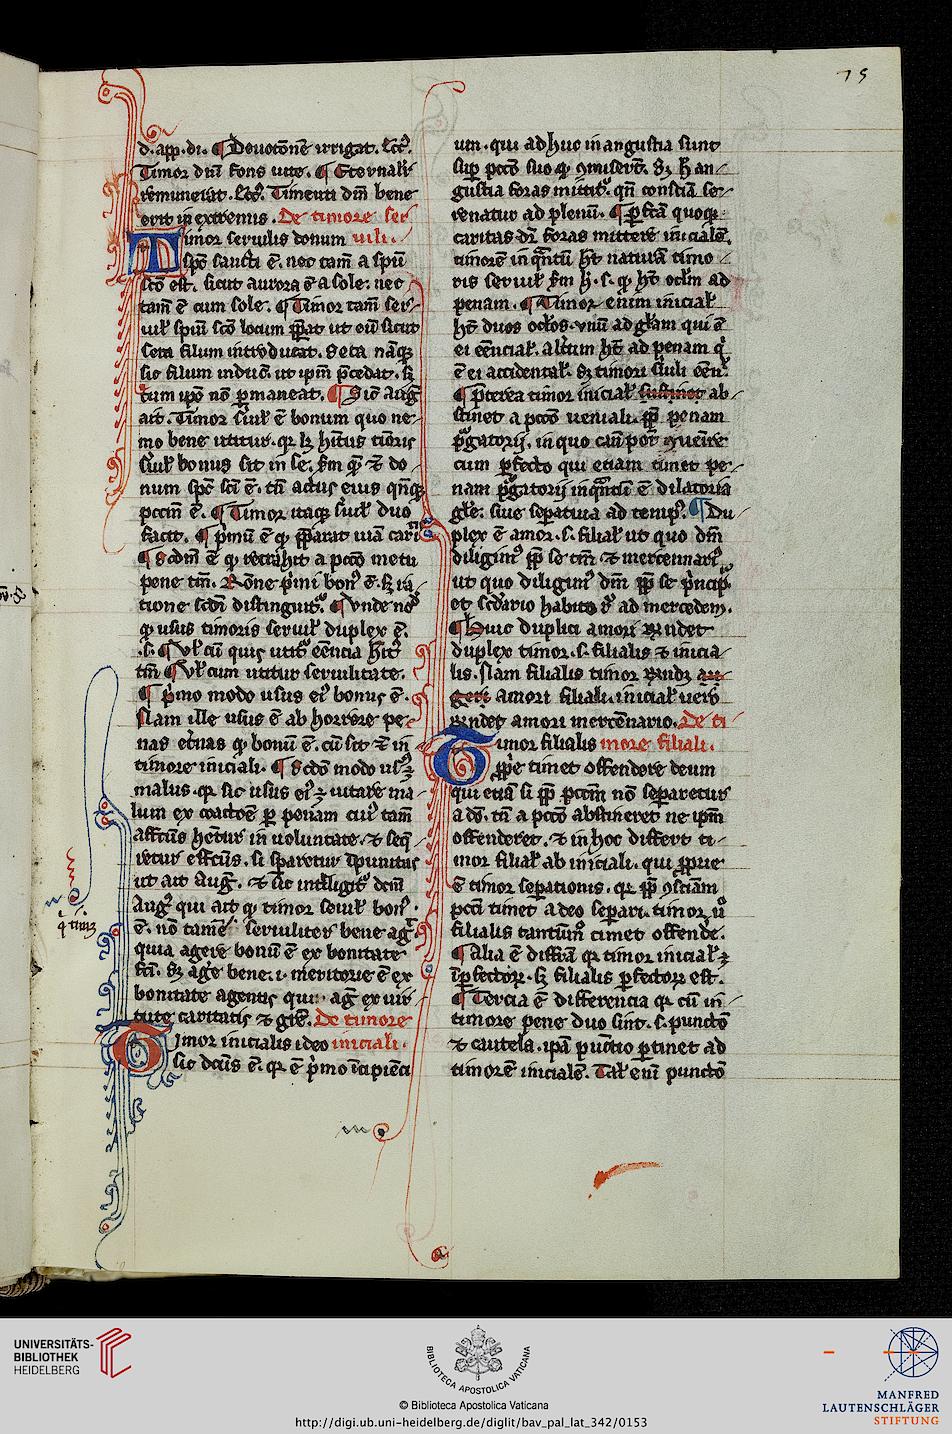 75
d. app. di. ¶ Deuotōnē irrigat. Eccͥ.
Timor dn̄i fons uite. ¶ Eternalit̾
remunerat. Eccͥ. Timenti dm̄ bene
erit in extremis. De timore ser
Timor seruilis donum uili.
sp̄c sancti ē. nec tam̄ a spū
sc̄o est. sicut aurora ē a sole. nec
tam̄ ē cum sole. ¶ Timor tam̄ ser
uil̾ spiui sc̄o locum p̄parat ut
seta filum introducat. Seta nāq̨
sic filum inducit ut ip̄m p̄cedat. s̄
cum ip̄o nō p̄maneat. ¶ Sic̄ aug̾
ait. Timor s̾uil̾ ē bonum quo ne
mo bene utitur. qr̨ l̨ hītus timoris
s̾uil̾ bonus sit in se. s̄m q̄ ⁊ do
num sp̄c sc̄i ē. tn̄ actus eius qn̄q̨
pcc̄m ē. ¶ Timor itaq̨ s̾uil̾ duo
facit. ¶ p̾mū ē q̨ p̄parat uiā cari
¶ Sc̄dm̄ ē q̨ retrahit a pcc̄o metu
pene tm̄. Rōne p̾mi bonꝰ ē. s̨ ra
tione sc̄di distinguit̾. ¶ Vnde no
q̨ usus timoris seruil̾ duplex ē.
.s. ¶ Vl̾ cū quis utit̾ eēncia
tm̄ ¶ Vl̾ cum utitur seruilitate.
¶ p̾mo modo usus eiꝰ bonus ē.
Nam ille usus ē ab horrore pe
nas et̾nas q̨ bonū ē. cū sit ⁊ in
timore iniciali. ¶ Sc̄do modo usꝰ ē
malus. qr̨ sic usus eiꝰ ē uitare ma
lum ex coactōe p̨ penam cuiꝰ tam̄
affc̄us het̾ur in uoluntate. ⁊ seq̄
retur effc̄us. si sparetur īpunitas
ut ait Aug̾. ⁊ sic intelligit̾ dc̄m
Augꝰ qui ait q̨ timor s̾uil̾ bonꝰ
ē. nō tamē seruiliter bene ag̾
quia agere bonū ē ex bonitate
fc̄i. s̨ age bene. i. meritorie ē ex
bonitate agentis qui ag̾ ex uir
tute caritatis ⁊ gr̄e. De timore
Timor inicialis ideo iniciali.
sic dc̄us ē. qr̨ ē p̾mo īcipienci
um. qui ad huc in angustia sunt
sup̨ pcc̄o suo q̨ ꝯmiserūt. s̨ h̄ an
gustia foras mittit̾. qn̄ consciā se
renatur ad plenū. ¶ p̨fc̄a quoq̨
caritas dr̄ foras mittere inicialē.
timorē in q̄ntū ht̄ naturā timo
ris seruil̾ s̄m h̨. s. q̨ ht̄ oclm̄ ad
penam. ¶ Timor enim inicial̾
ht̄ duos ocl̾os. vnū ad gl̾am qui ē
ei eēncial̾. alt̾um ht̄ ad penam q̾
ē ei accidental̾. s̨ timori s̾uili eēn̾.
¶ p̾terea timor inicial̾ sustinet ab
stinet a pcc̄o ueniali. p̄p̄ penam
p̾gatorij. in quo
cum p̨fecto qui etiam timet pe
nam p̾gatorij inq̄ntū ē dilatoria
gl̾e. siue seperatiua ad tempꝰ. ¶ Du
plex ē amor. s. filial̾ ut quo dm̄
diligimꝰ p̄p̄ se tm̄ ⁊ mercennarꝰ
ut quo diligimꝰ dm̄ p̄p̄ se p̾ncip̾
et sec̄dario habito rꝰ ad mercedem.
¶ Huic duplici amori rn̄det
duplex timor. s. filialis ⁊ inicia
lis. Nam filialis timor rn̄det an
geri amori filiali. inicial̾ uero
rn̄det amori mercēnario. De ti
Timor filialis more filiali.
p̄p̄e timet offendere deum
qui etiā si p̄p̄ pcc̄m nō separetur
a dō. tn̄ a pcc̄o abstineret ne ip̄m
offenderet. ⁊ in hoc differt ti
mor filial̾ ab iniciali. qui p̄prie
ē timor seperationis. qr̨ p̄p̄ ꝯsciām
pcc̄i timet a deo sepeari. timor ū
filialis tantūm̄ timet offend̾e.
¶ Alia ē diffr̄a qr̨ timor inicial̾ ē
īp̨fectoꝝ. s̨ filialis p̨fectoꝝ est.
¶ Tercia ē differencia qr̨ cū in
timore pene duo sint. s. punctō
⁊ cautela. ip̄a punctio p̨tinet ad
timorē inicialē. Tal̾ eni punctō
UNIVERSITÄTS-
BIBLIOTHEK
HEIDELBERG
BIBLIOTECA APOSTOLICA VATICANA
© Biblioteca Apostolica Vaticana
http://digi.ub.uni-heidelberg.de/diglit/bav_pal_lat_342/0153
MANFRED
LAUTENSCHLÄGER
STIFTUNG